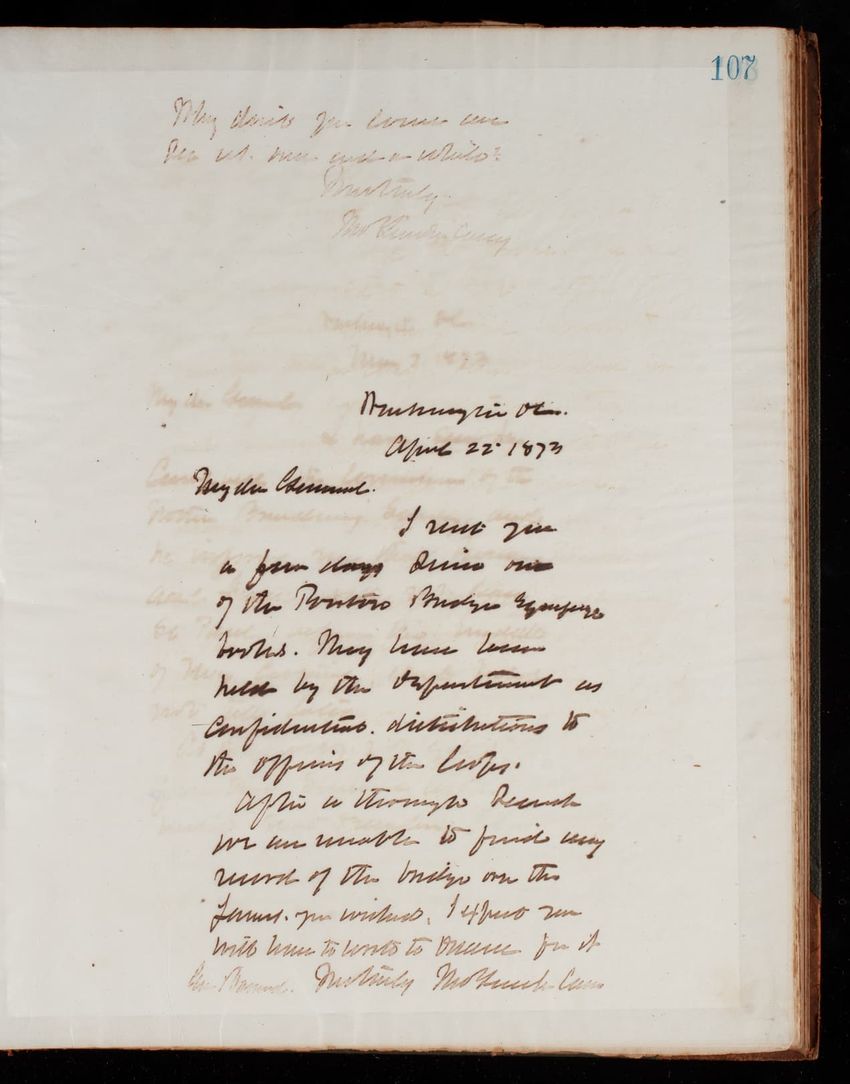 107
Why don't you come and
see us. now and a while?
Yours truly
Thos Lincoln Casey
Washington DC.
April 22 1873
My dear General.
I sent you
a few days since one
of the Ponton Bridge Equipage
books. They have been
held by the Department as
confidential. distributions to
the officers of the Corps.
After a thorough search
we are unable to find any
record of the bridge over the
James. you wished. I expect you
will have to write to for it
Yours truly Thos Lincoln Casey